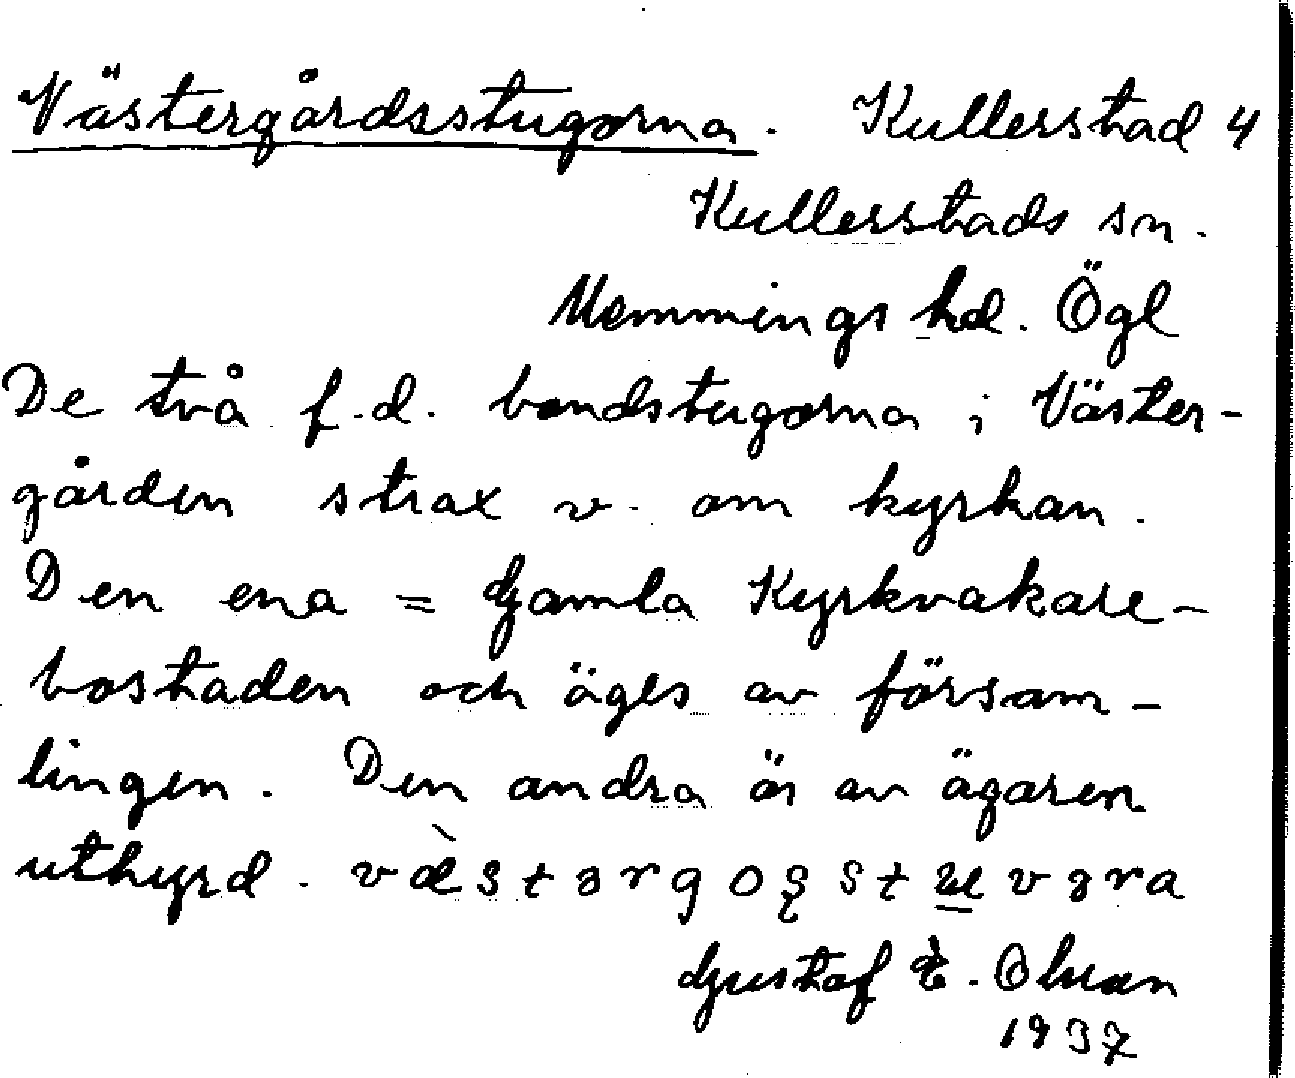 Västergårdsstugorna. Kullerstad 4
Kullerstads sn.
Memmings hd. Ögl
De två f.d. bondstugorna i Väster-
gården strax v. om kyrkan.
Den ena = Gamla Kyrkvakare-
bostaden och äges av försam-
lingen. Den andra är av ägaren
uthyrd.
Gustaf E. Olsson
1937